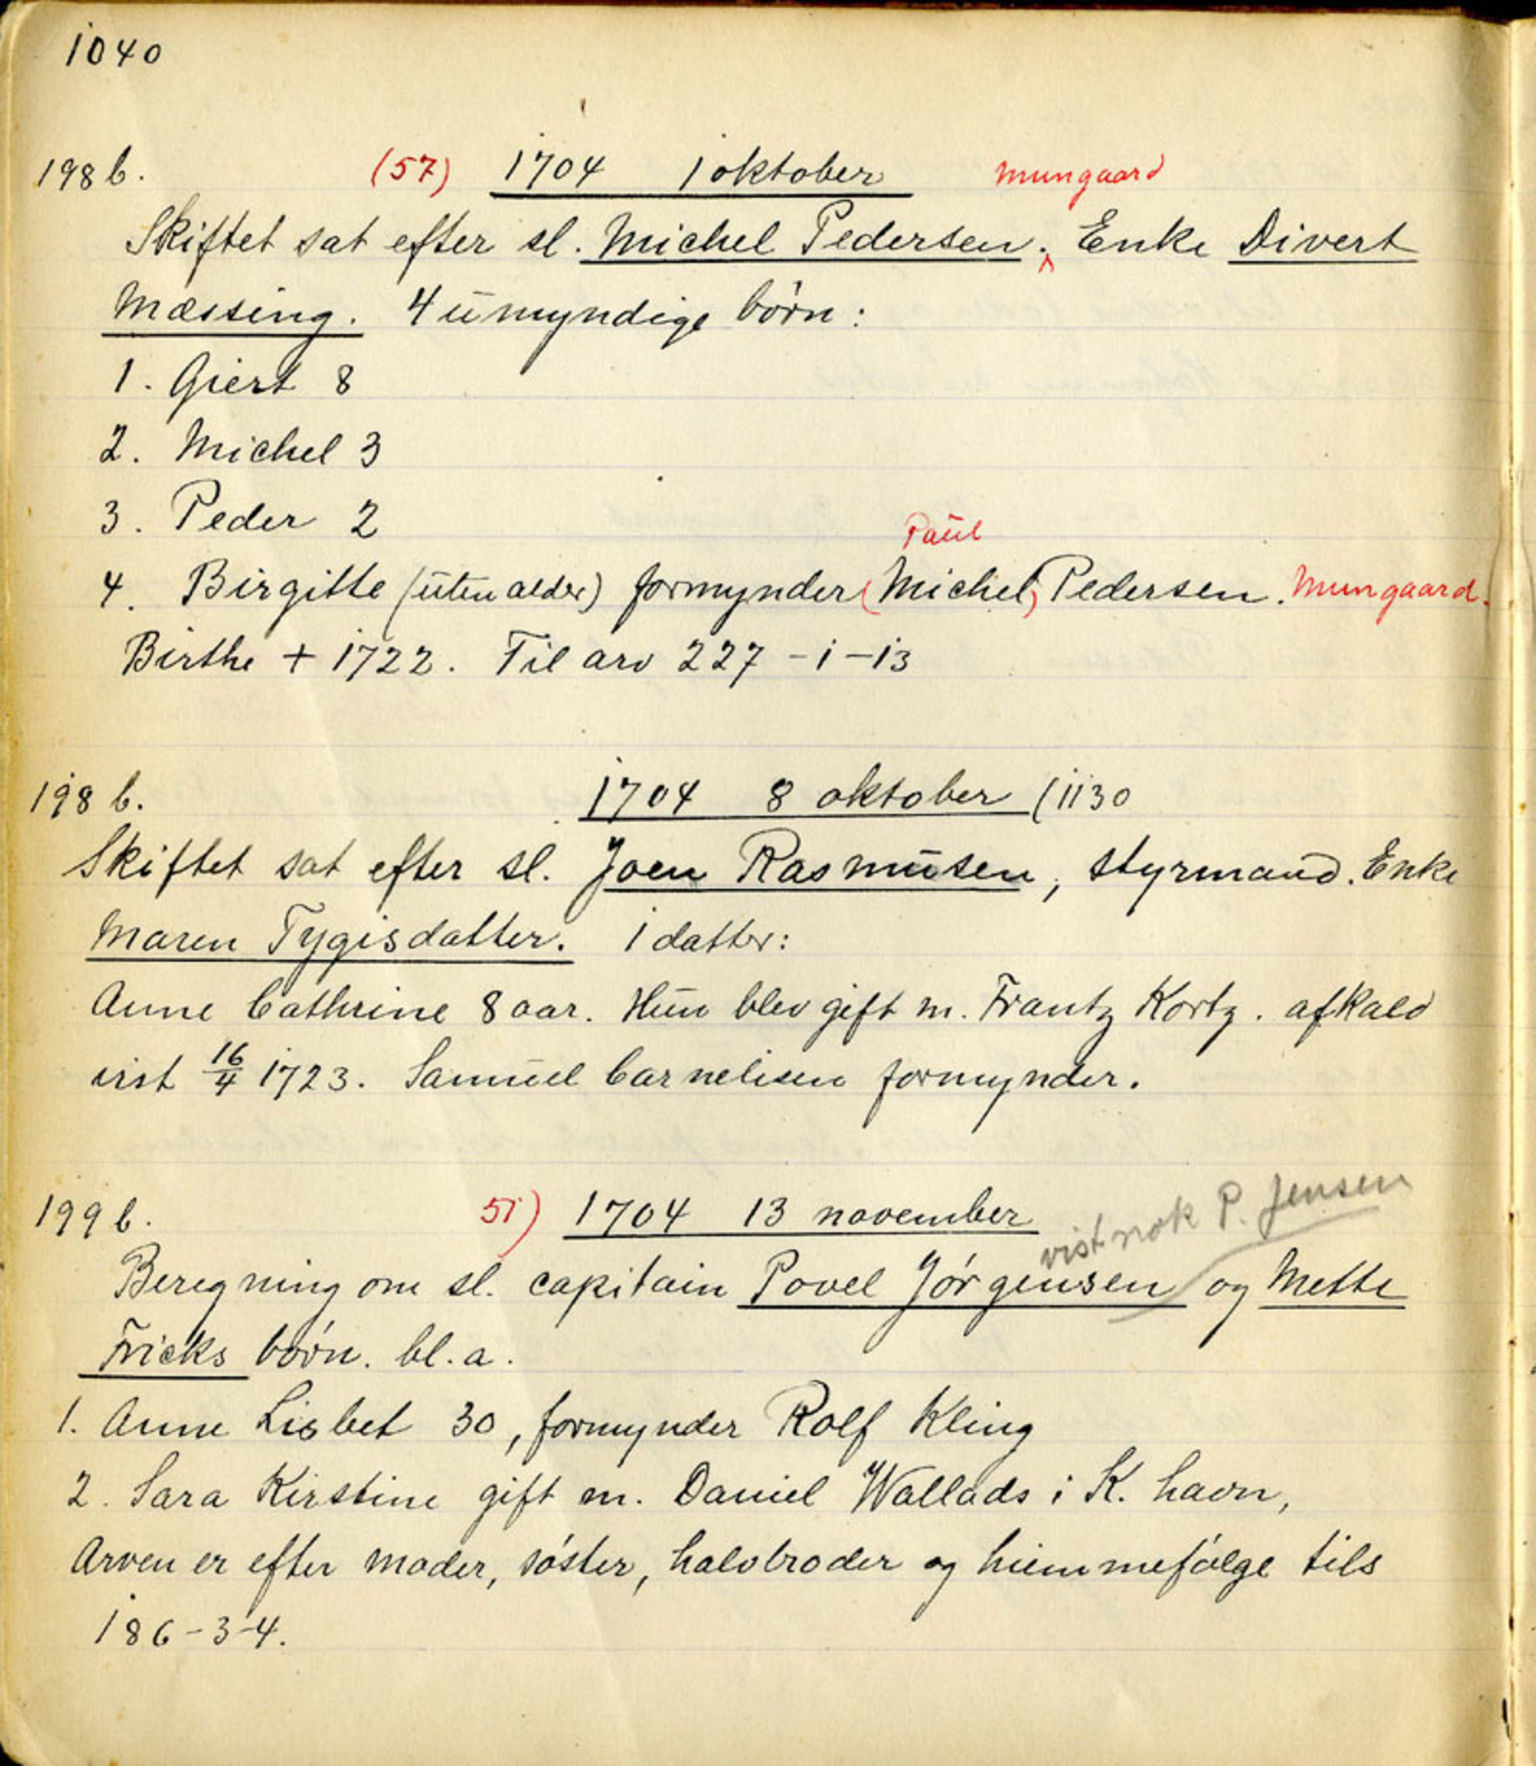 1040
198 b. (57) 1704 1 oktober Mungaard
Skiftet sat efter sl. Michel Pedersen, Enke Divert
Mæssing. 4 umyndige börn:
1. Giert 8
2. Michel 3
3. Peder 2
Paul
4. Birgitte (uten alder) formynder (Michel) Pedersen. Mungaard.
Birthe + 1722. Til arv 227-1-13
198 b. 1704 8 oktober (1130
Skiftet sat efter sl. Joen Rasmusen, styrmand. Enke
Maren Tygisdatter. 1 datter:
Anne Cathrine 8 aar. Hun blev gift m. Frantz Kortz. afkald
vist 16/4 1723. Samuel Carnelisen formynder.
199 b. 51) 1704 13 november
vistnok P. Jensen
Beregning om sl. capitain Povel Jörgensen og Mette
Fricks börn. bl. a.
1. Anne Lisbet 30, formynder Rolf Kling
2. Sara Kirstine gift m. Daniel Wallads i K. havn,
Arven er efter moder, söster, halvbroder og hiemmefölge tils
186-3-4.